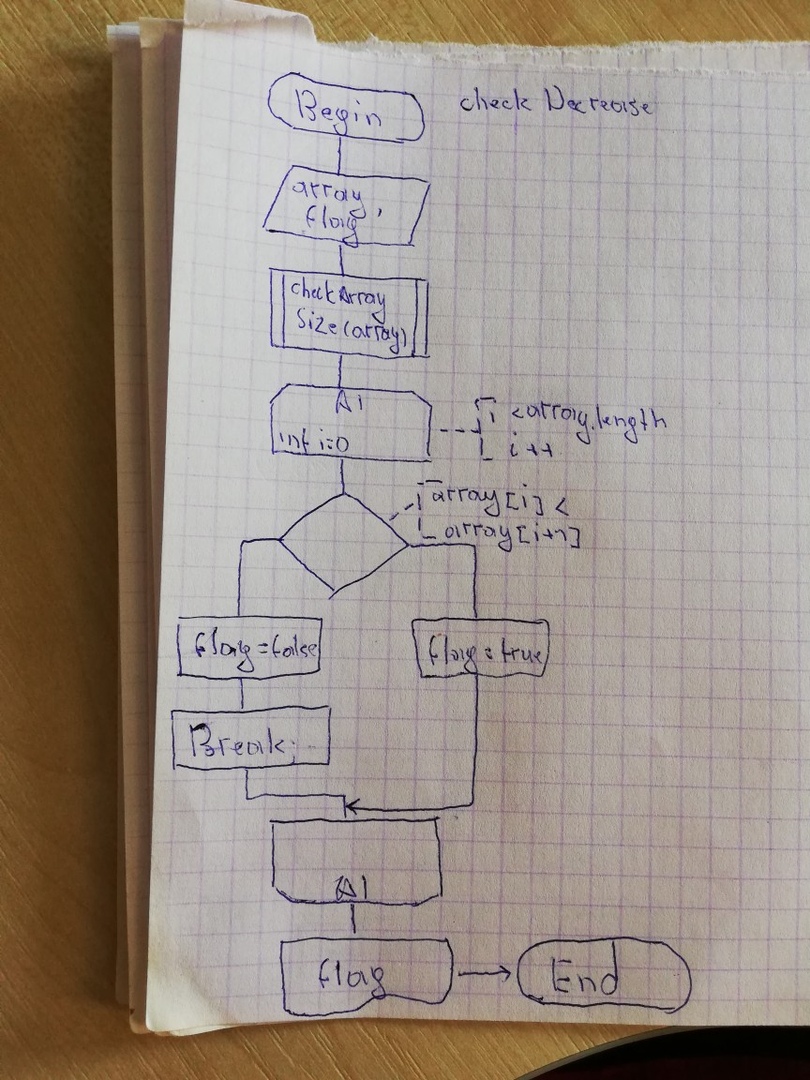 Begin
check Decrease
array,
flag
checkArray
Size(array)
A1
int i=0
i <array.length
i++
array[i] <
array[i+1]
flag=false
flag=true
Break;
A1
flag
End